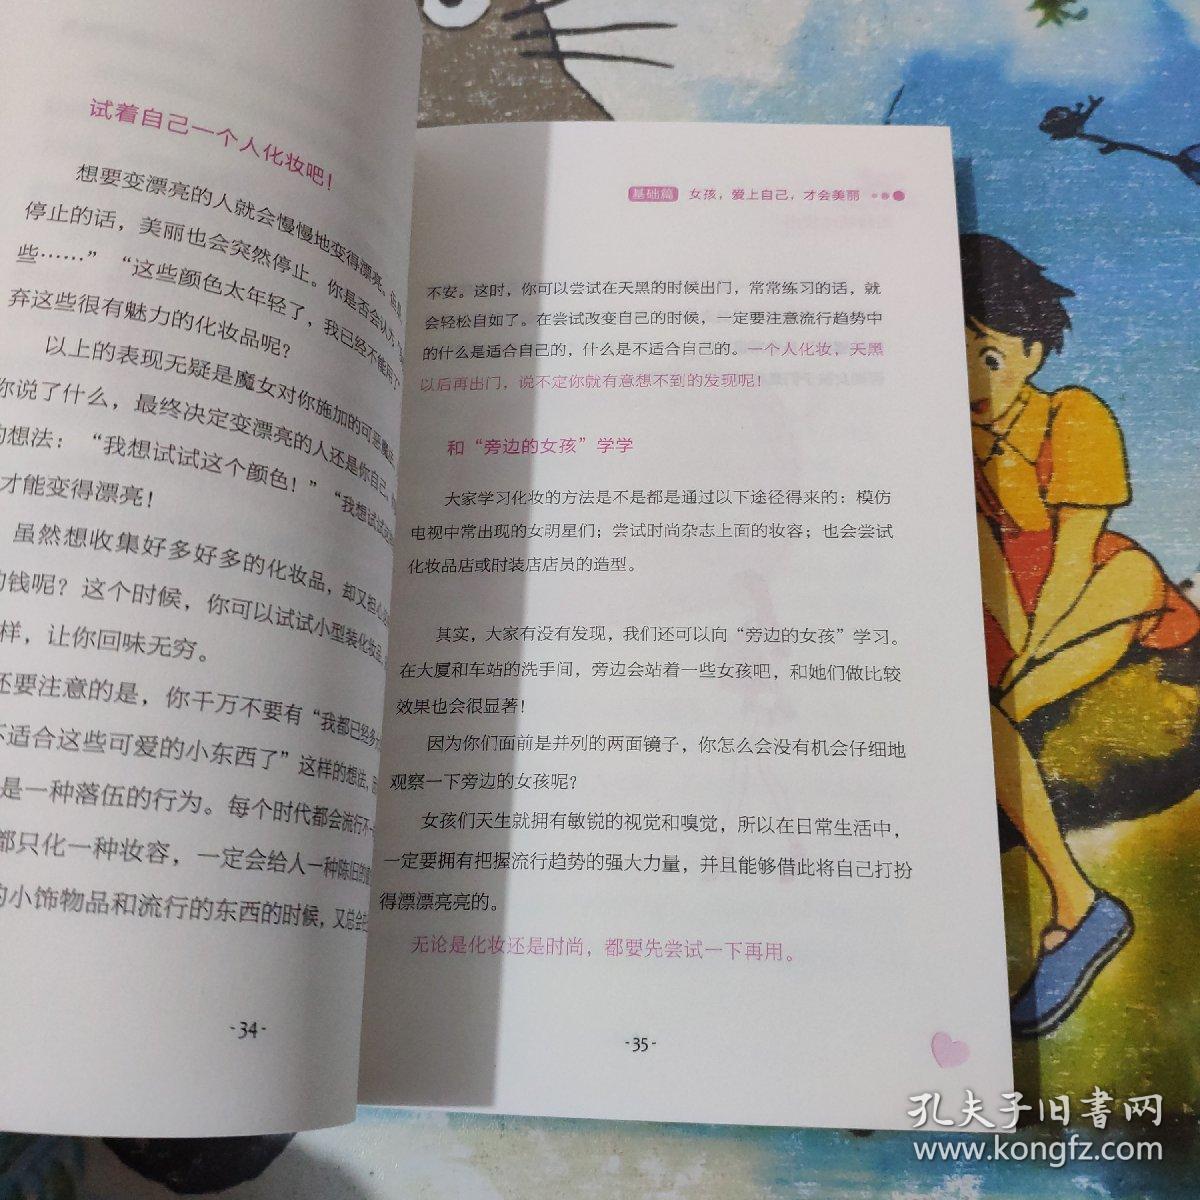 试着自己一个人化妆吧！
想要变漂亮的人就会慢慢地变得漂亮，
停止的话，美丽也会突然停止。你是否会认为
些……”“这些颜色太年轻了，我已经不能用了
弃这些很有魅力的化妆品呢？
以上的表现无疑是魔女对你施加的可恶魔法
你说了什么，最终决定变漂亮的人还是你自己。
的想法：“我想试试这个颜色！”“我想试试
才能变得漂亮！
虽然想收集好多好多的化妆品，却又担心
的钱呢？这个时候，你可以试试小型装化妆品，
样，让你回味无穷。
还要注意的是，你千万不要有“我都已经
不适合这些可爱的小东西了”这样的想法，
是一种落伍的行为。每个时代都会流行不一
都只化一种妆容，一定会给人一种陈旧的
的小饰物品和流行的东西的时候，又总会在
-34-
基础篇 女孩，爱上自己，才会美丽
不安。这时，你可以尝试在天黑的时候出门，常常练习的话，就
会轻松自如了。在尝试改变自己的时候，一定要注意流行趋势中
的什么是适合自己的，什么是不适合自己的。一个人化妆，天黑
以后再出门，说不定你就有意想不到的发现呢！
和“旁边的女孩”学学
大家学习化妆的方法是不是都是通过以下途径得来的：模仿
电视中常出现的女明星们；尝试时尚杂志上面的妆容；也会尝试
化妆品店或时装店店员的造型。
其实，大家有没有发现，我们还可以向“旁边的女孩”学习。
在大厦和车站的洗手间，旁边会站着一些女孩吧，和她们做比较
效果也会很显著！
因为你们面前是并列的两面镜子，你怎么会没有机会仔细地
观察一下旁边的女孩呢？
女孩们天生就拥有敏锐的视觉和嗅觉，所以在日常生活中，
一定要拥有把握流行趋势的强大力量，并且能够借此将自己打扮
得漂漂亮亮的。
无论是化妆还是时尚，都要先尝试一下再用。
-35-
孔夫子旧书网
www.kongfz.com